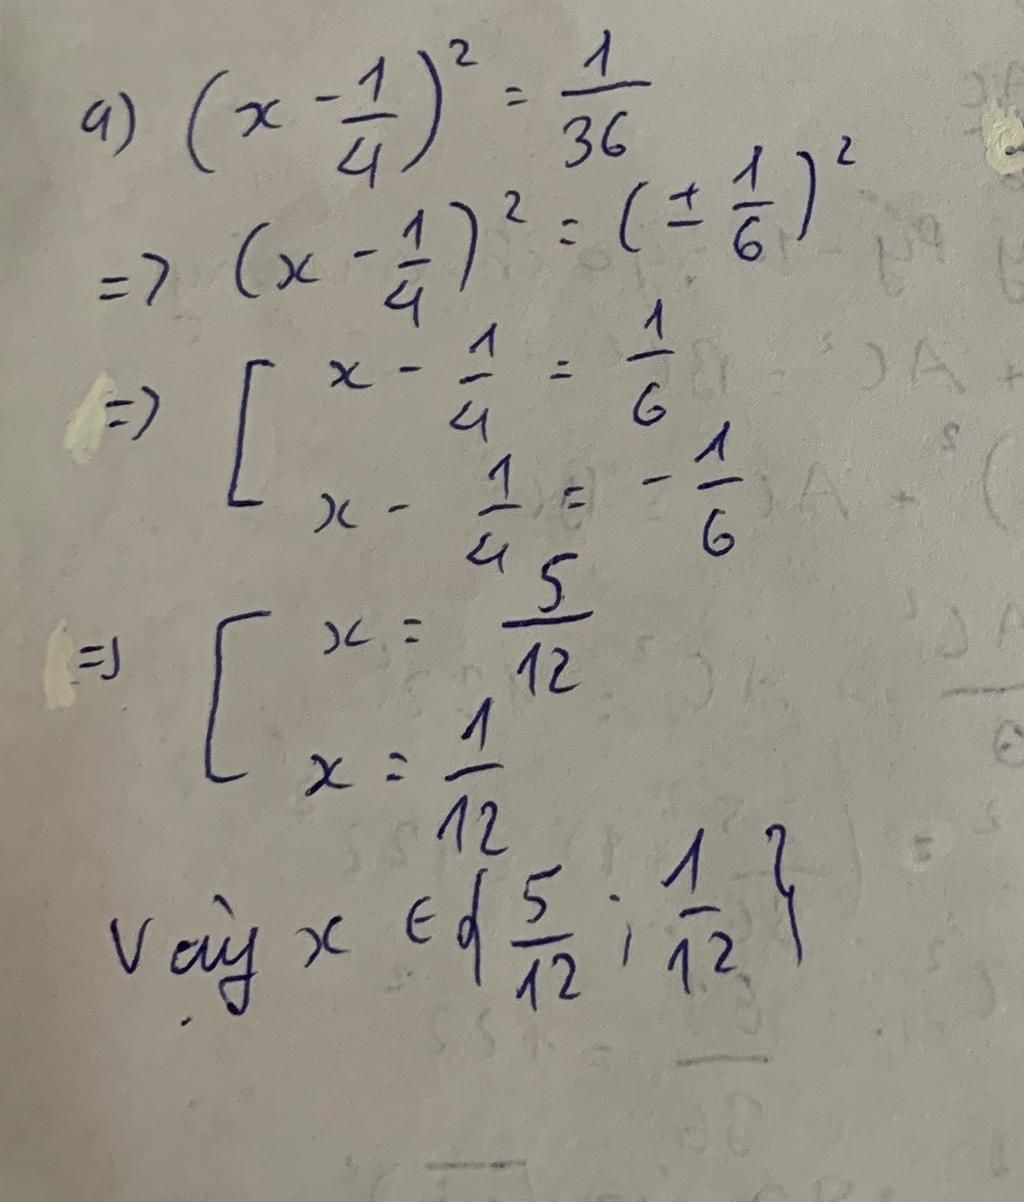 a) (x - 1/4)² = 1/36
=> (x - 1/4)² = (± 1/6)²
=> [ x - 1/4 = 1/6
x - 1/4 = - 1/6
=> [ x = 5/12
x = 1/12
Vậy x ∈ { 5/12 ; 1/12 }